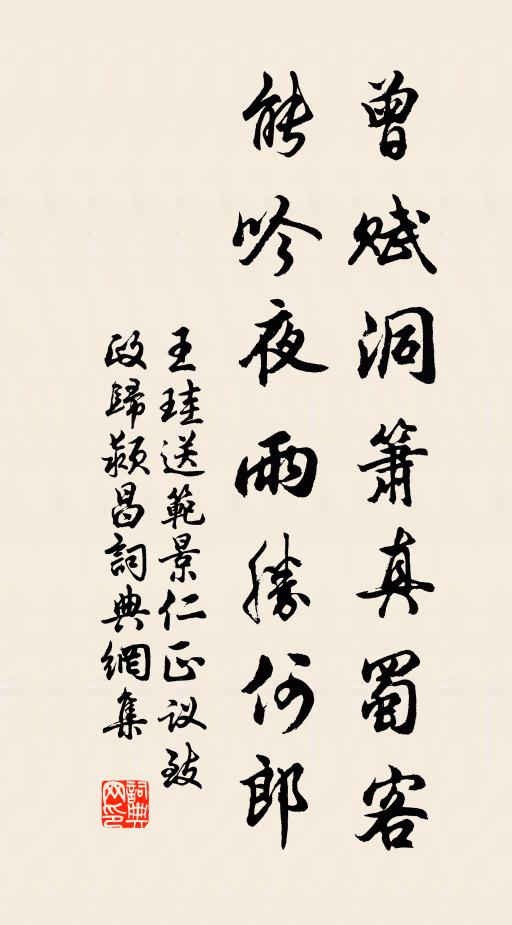 曾赋洞箫真蜀客
能吟夜雨勝何郎
王珪送範景仁正议致
政歸颍昌詞典網集
詞典
网印